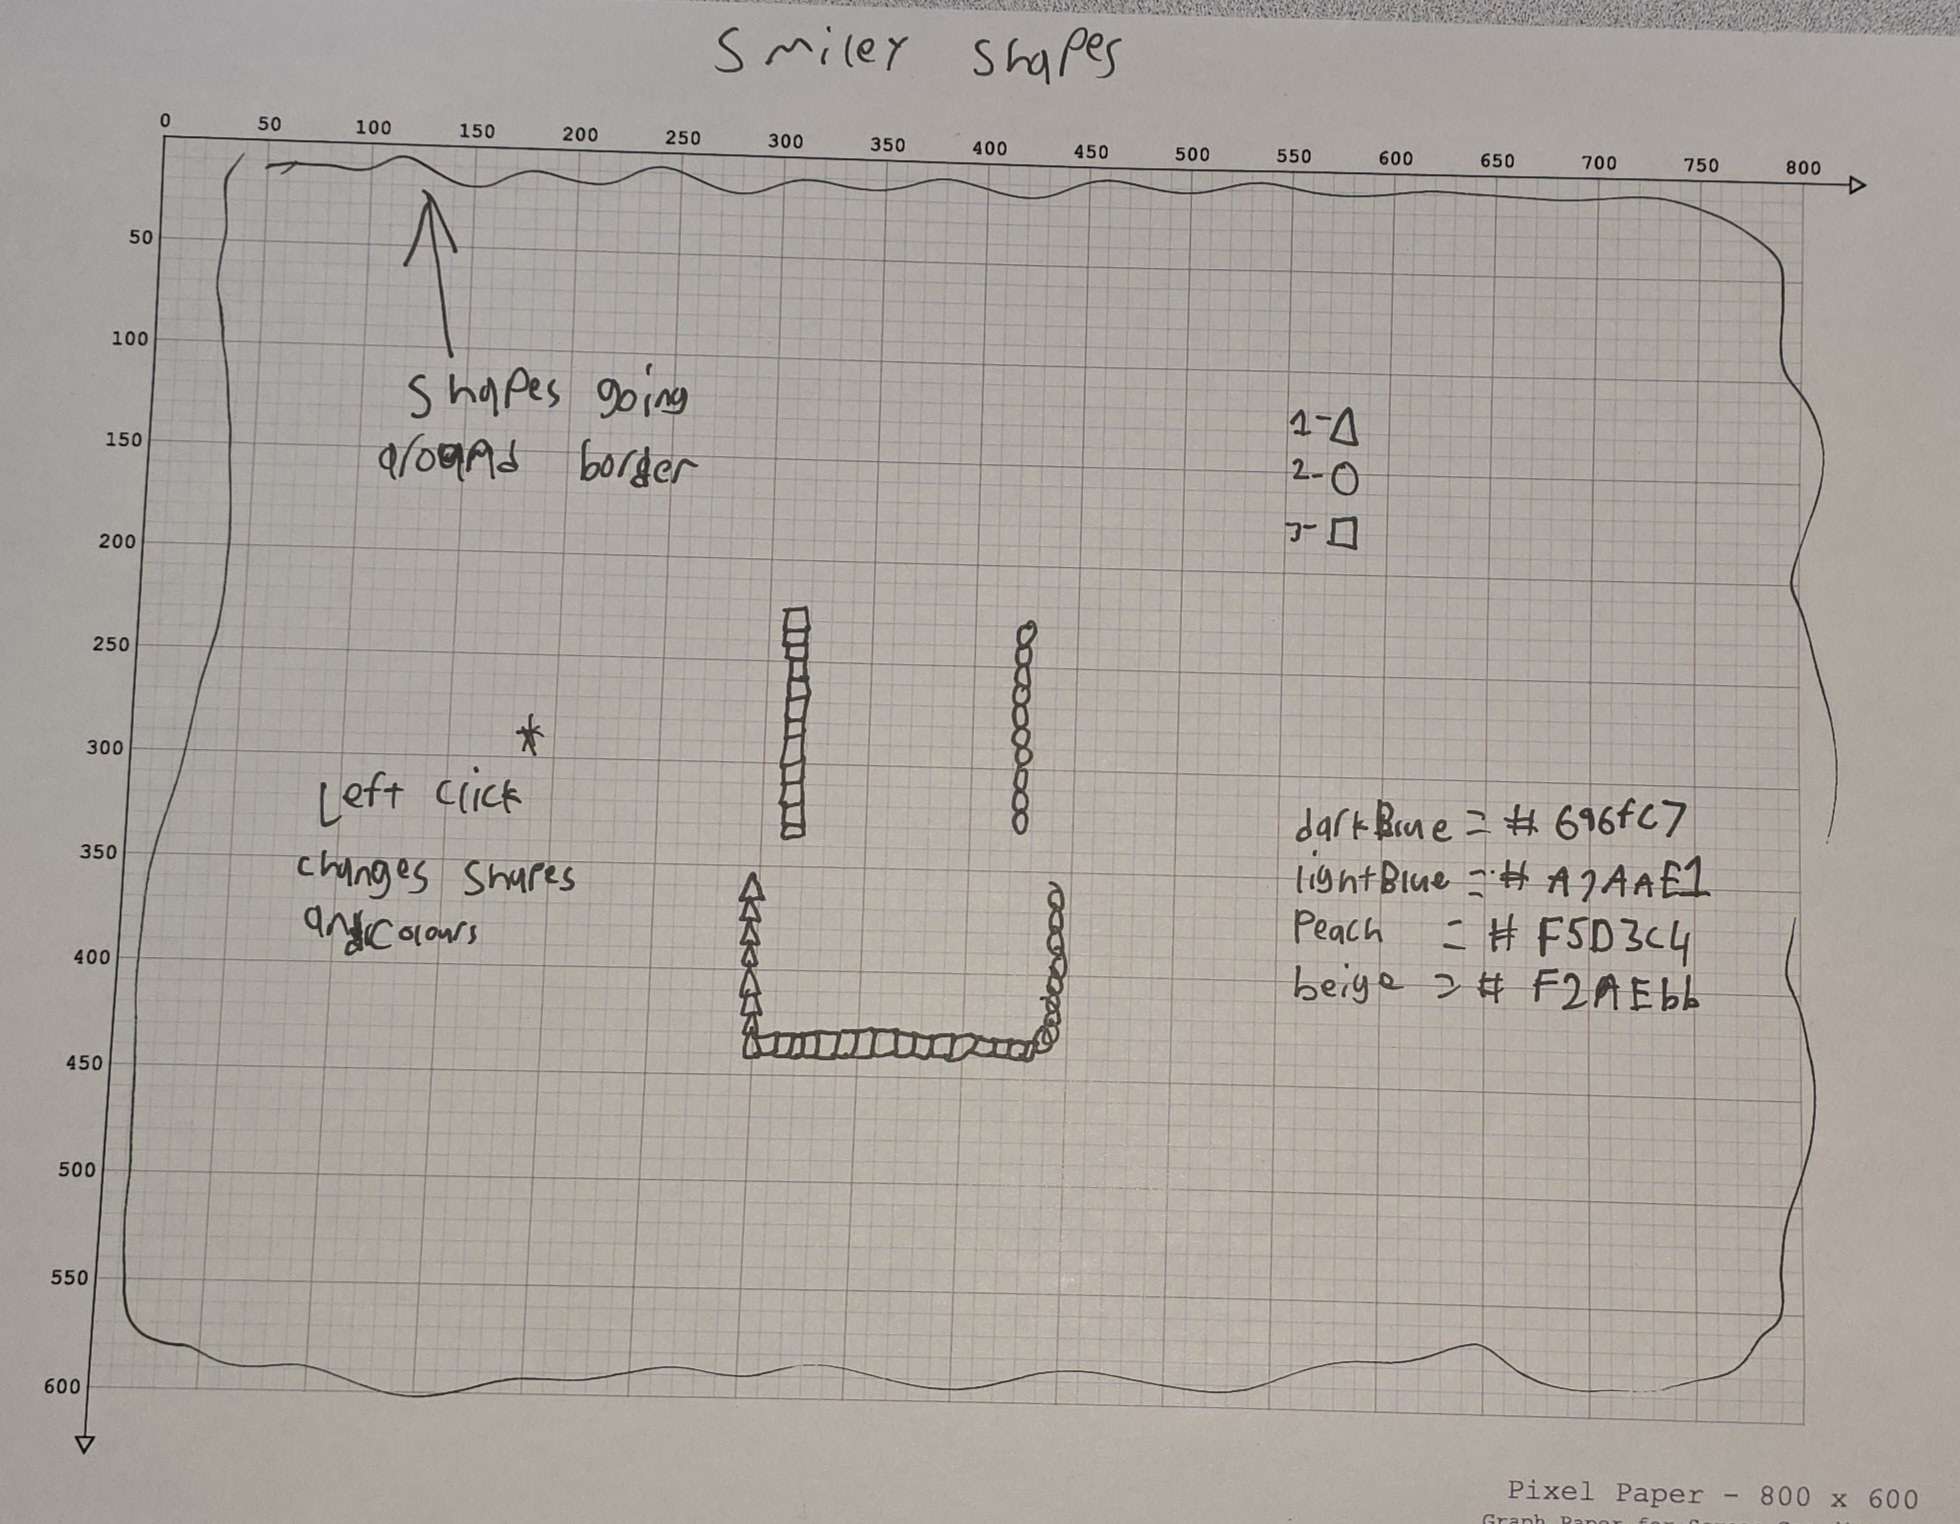 Smiley Shapes
0 50 100 150 200 250 300 350 400 450 500 550 600 650 700 750 800
50
100
150
200
250
300
350
400
450
500
550
600
Shapes going
around border
1-△
2-○
3-□
*
Left click
changes Shapes
and colours
darkBlue = # 696fC7
lightBlue = # A7AAE1
Peach = # F5D3C4
beige = # F2AEbb
Pixel Paper - 800 x 600
Graph Paper for